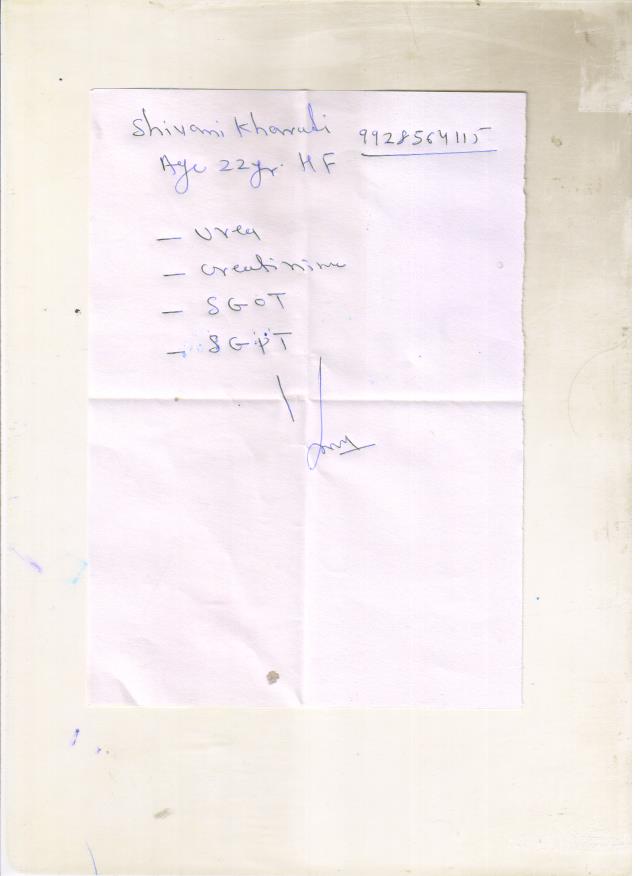 Shivani 9928564115
Age 22yr. HF
- Urea
- Creatinine
- SGOT
- SGPT